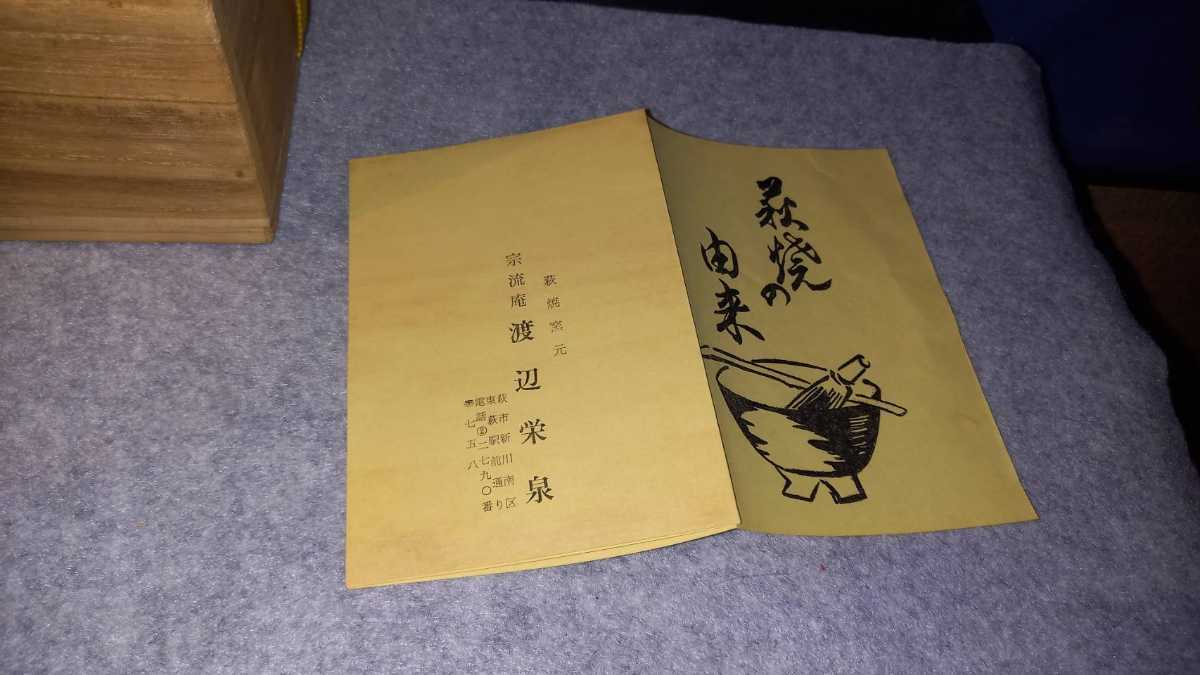 萩焼の
由来
萩焼窯元
宗流庵 渡辺栄泉
萩市新川南区
東萩駅前通り
電話②二七九〇番
七五八